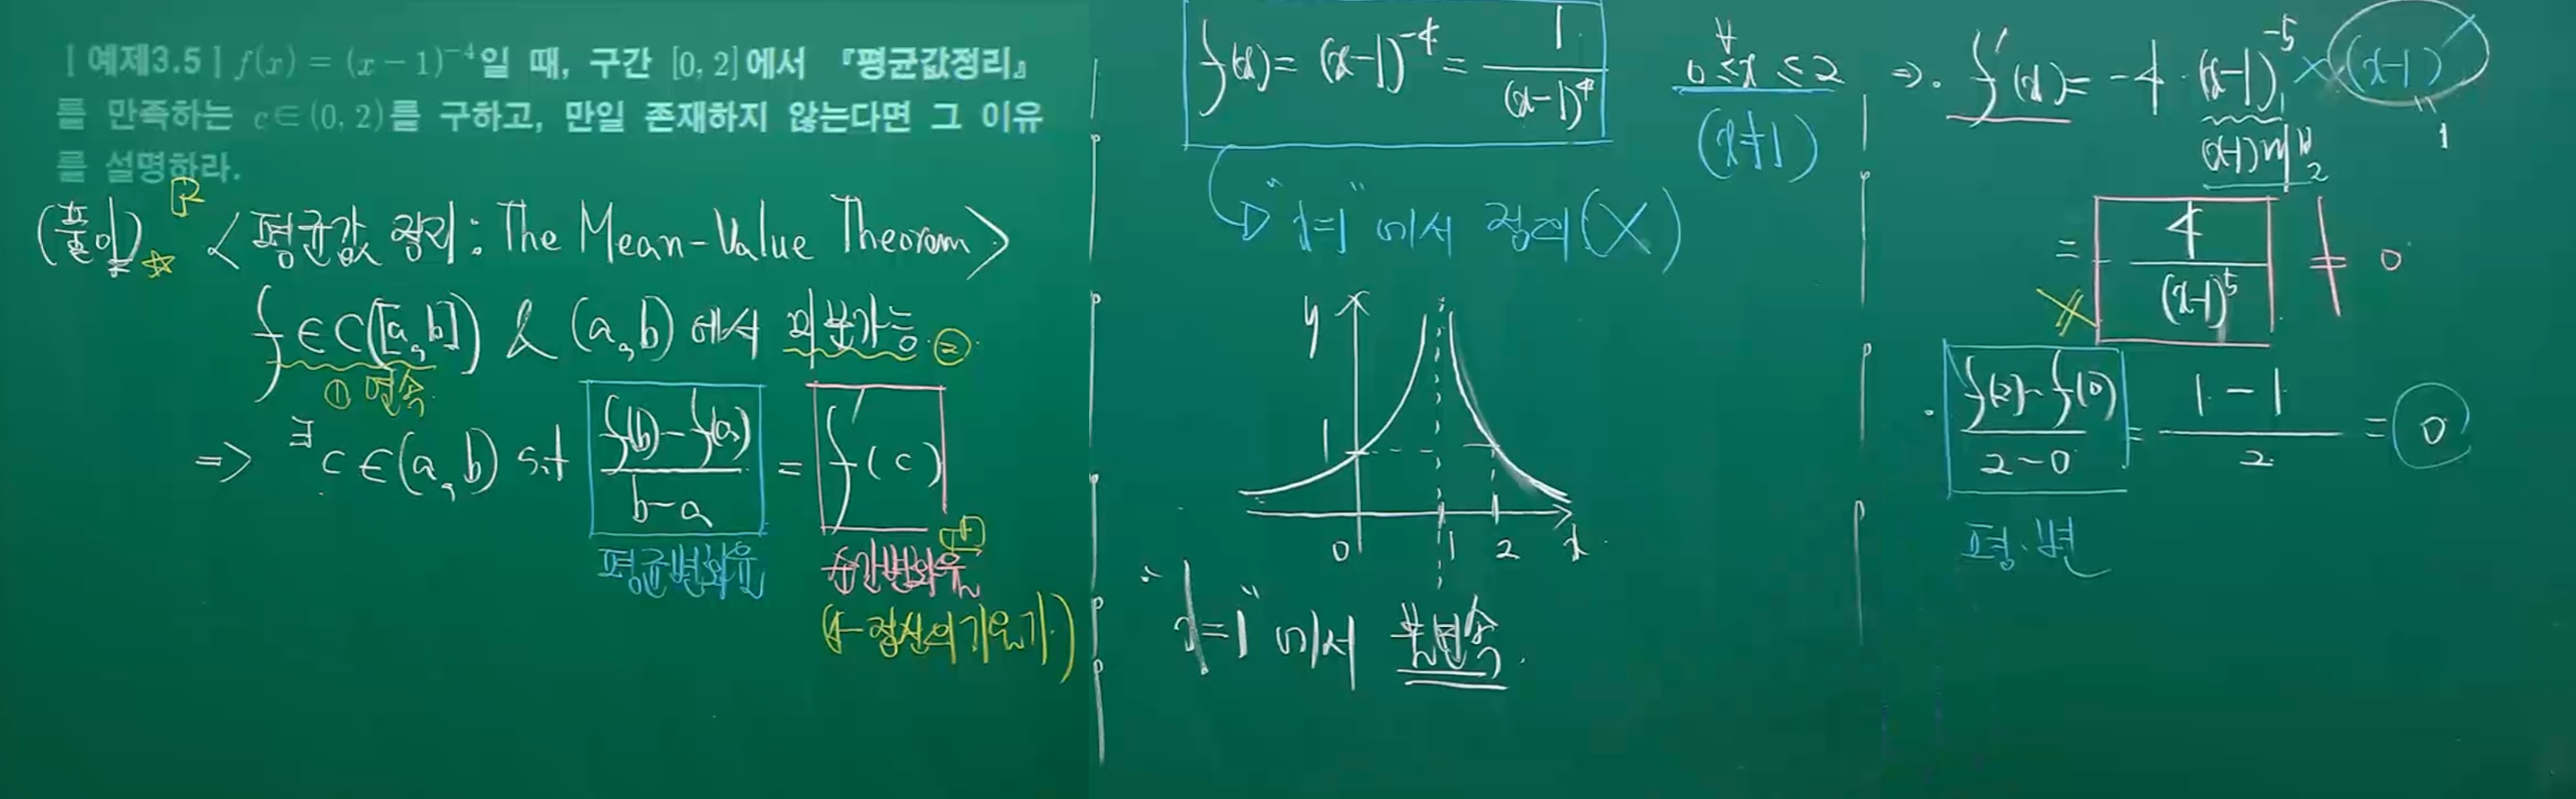 [ 예제3.5 ] f(x) = (x − 1)⁻⁴일 때, 구간 [0, 2]에서 『평균값정리』
를 만족하는 c∈(0, 2)를 구하고, 만일 존재하지 않는다면 그 이유
를 설명하라.
(풀이) ☆ <평균값 정리 : The Mean-Value Theorem>
f ∈ C([a, b]) & (a, b) 에서 미분가능 ②
① 연속
⇒ ∃c ∈ (a, b) s.t (f(b)−f(a))/(b−a) = f′(c)
평균변화율 순간변화율
(접선의 기울기)
f(x) = (x−1)⁻⁴ = 1/(x−1)⁴ ∀ 0 ≤ x ≤ 2
(x≠1)
"x=1" 에서 정의(X)
y
1
0 1 2 x
"x=1" 에서 불연속.
⇒. f′(x) = −4 · (x−1)⁻⁵ × (x−1)′
(x−1) 1
= − 4/(x−1)⁵ ≠ 0
· (f(2)−f(0))/(2−0) = (1−1)/2 = 0
평.변